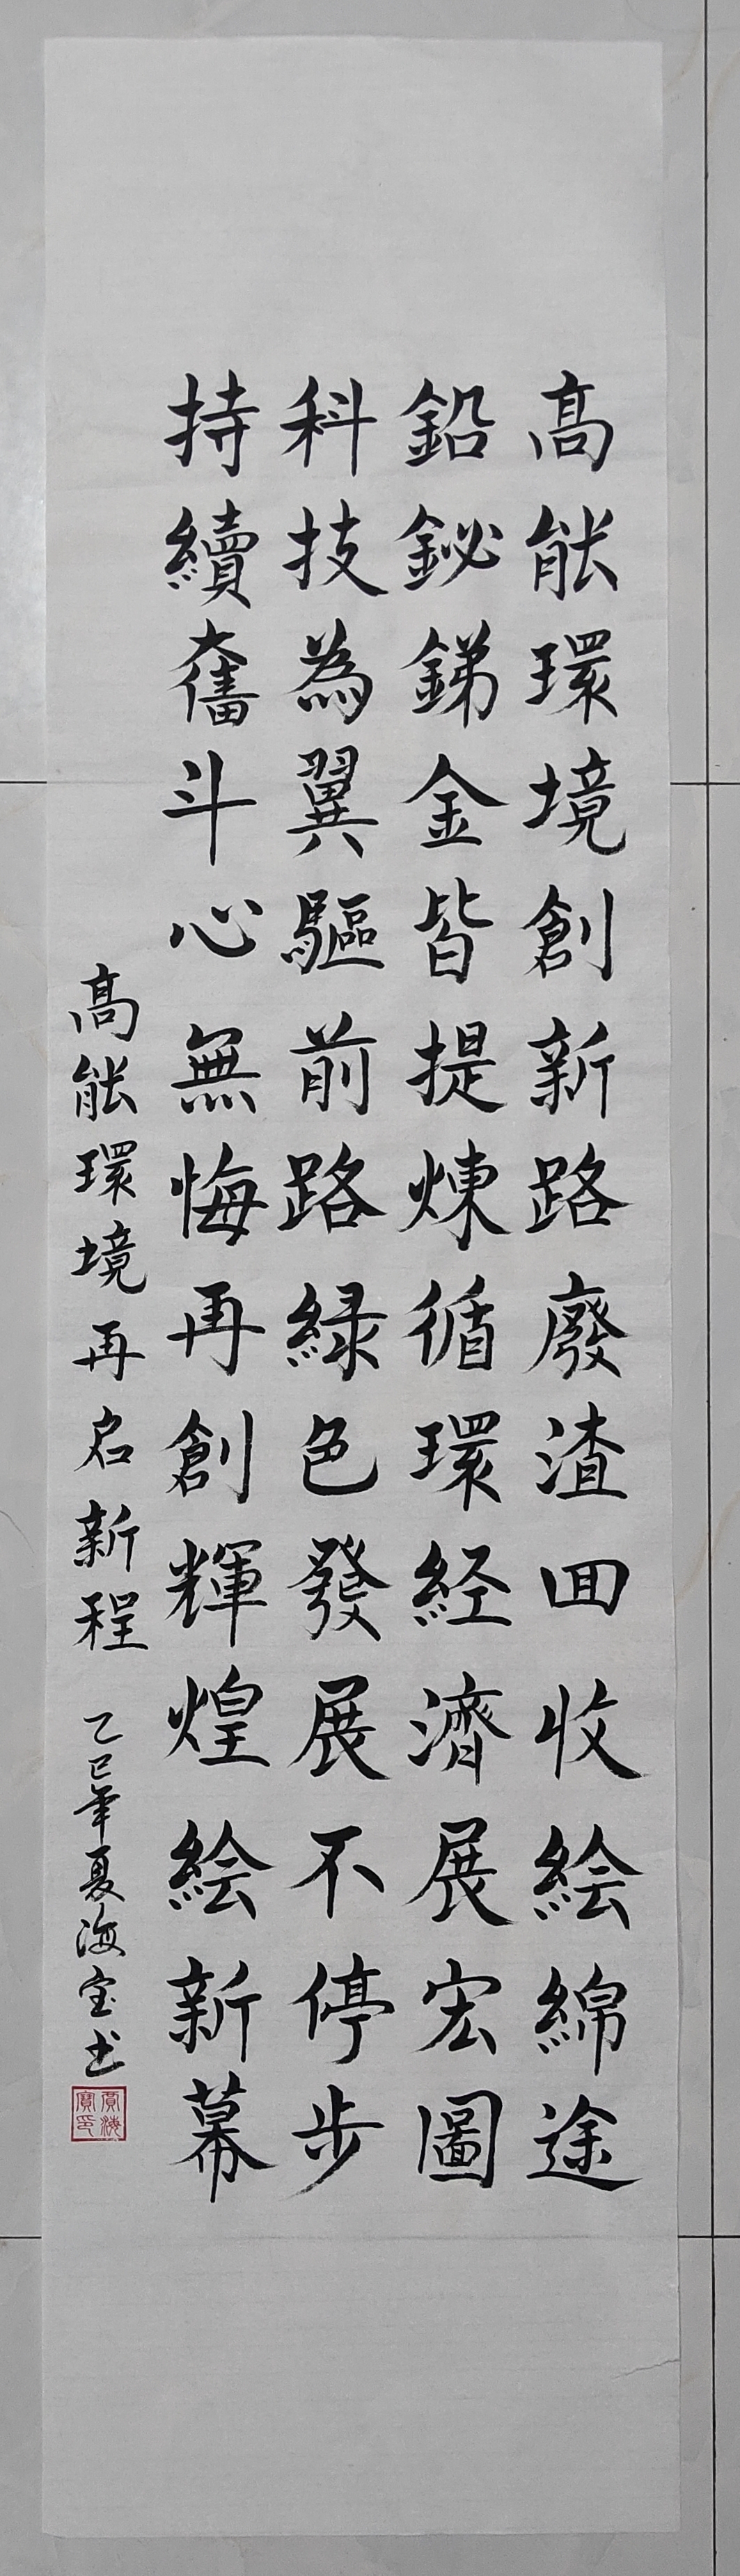 高能環境創新路廢渣回收绘綿途
鉛鉍銻金皆提煉循環経濟展宏圖
科技為翼驅前路緑色發展不停步
持續奮斗心無悔再創輝煌絵新幕
高能環境再启新程
乙巳年夏海宝书
賈海寶印